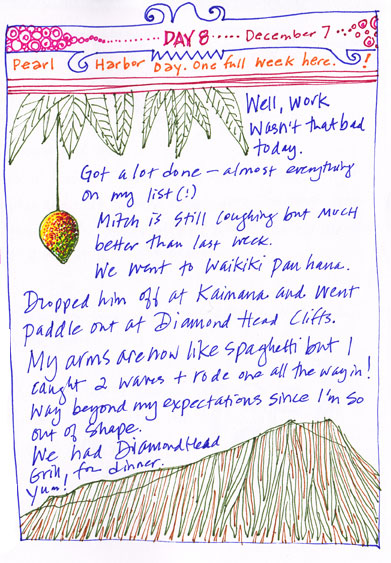 DAY 8 December 7
Pearl Harbor Day. One full week here. !
Well, work
wasn't that bad
today.
Got a lot done - almost everything
on my list (!)
Mitch is still coughing but much
better than last week.
We went to Waikiki pau hana.
Dropped him off at Kaimana and went
paddle out at Diamond Head Cliffs.
My arms are now like spaghetti but I
caught 2 waves + rode one all the way in!
Way beyond my expectations since I'm so
out of shape.
We had Diamond Head
Grill for dinner.
Yum!